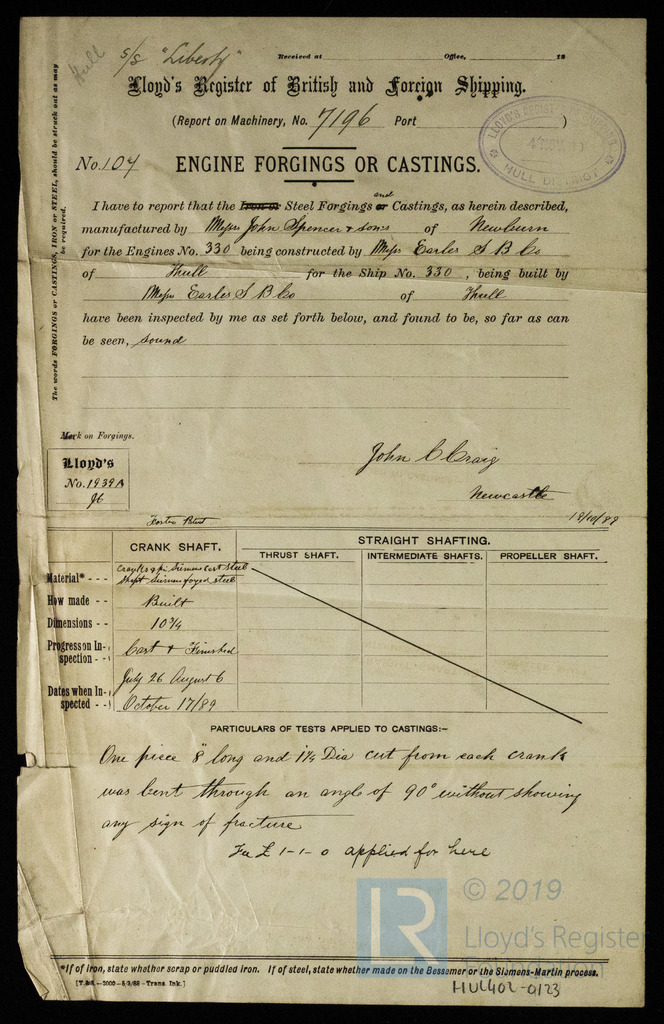 Hull
S/S "Liberty"
Received at Office, 18
Lloyd's Register of British and Foreign Shipping.
(Report on Machinery, No. 7196 Port )
LLOYD'S REGISTER
HULL DISTRICT
No. 104 ENGINE FORGINGS OR CASTINGS.
The words FORGINGS or CASTINGS, IRON or STEEL, should be struck out as may be required.
and
I have to report that the Iron or Steel Forgings or Castings, as herein described,
manufactured by Messrs John Spencer & sons of Newburn
for the Engines No. 330 being constructed by Messrs Earles S B Co
of Hull for the Ship No. 330, being built by
Messrs Earles S B Co of Hull
have been inspected by me as set forth below, and found to be, so far as can
be seen, sound
Mark on Forgings.
Lloyd's
No. 1939A
John C Craig
Newcastle
18/10/89
CRANK SHAFT. STRAIGHT SHAFTING.
THRUST SHAFT. INTERMEDIATE SHAFTS. PROPELLER SHAFT.
Material* - - - Siemens cast steel
Shaft Siemens forged steel
How made - - Built
Dimensions - - 10¾
Progress on Inspection - - Cast & Finished
July 26 August 6
Dates when Inspected - - October 17/89
PARTICULARS OF TESTS APPLIED TO CASTINGS:—
One piece 8" long and 1¼ Dia cut from each crank
was bent through an angle of 90° without showing
any sign of fracture
Fee £ 1-1-0 applied for here
© 2019
Lloyd's Register
Foundation
*If of iron, state whether scrap or puddled iron. If of steel, state whether made on the Bessemer or the Siemens-Martin process.
—3000—5/3/88—Trans Ink.]
HUL402-0123